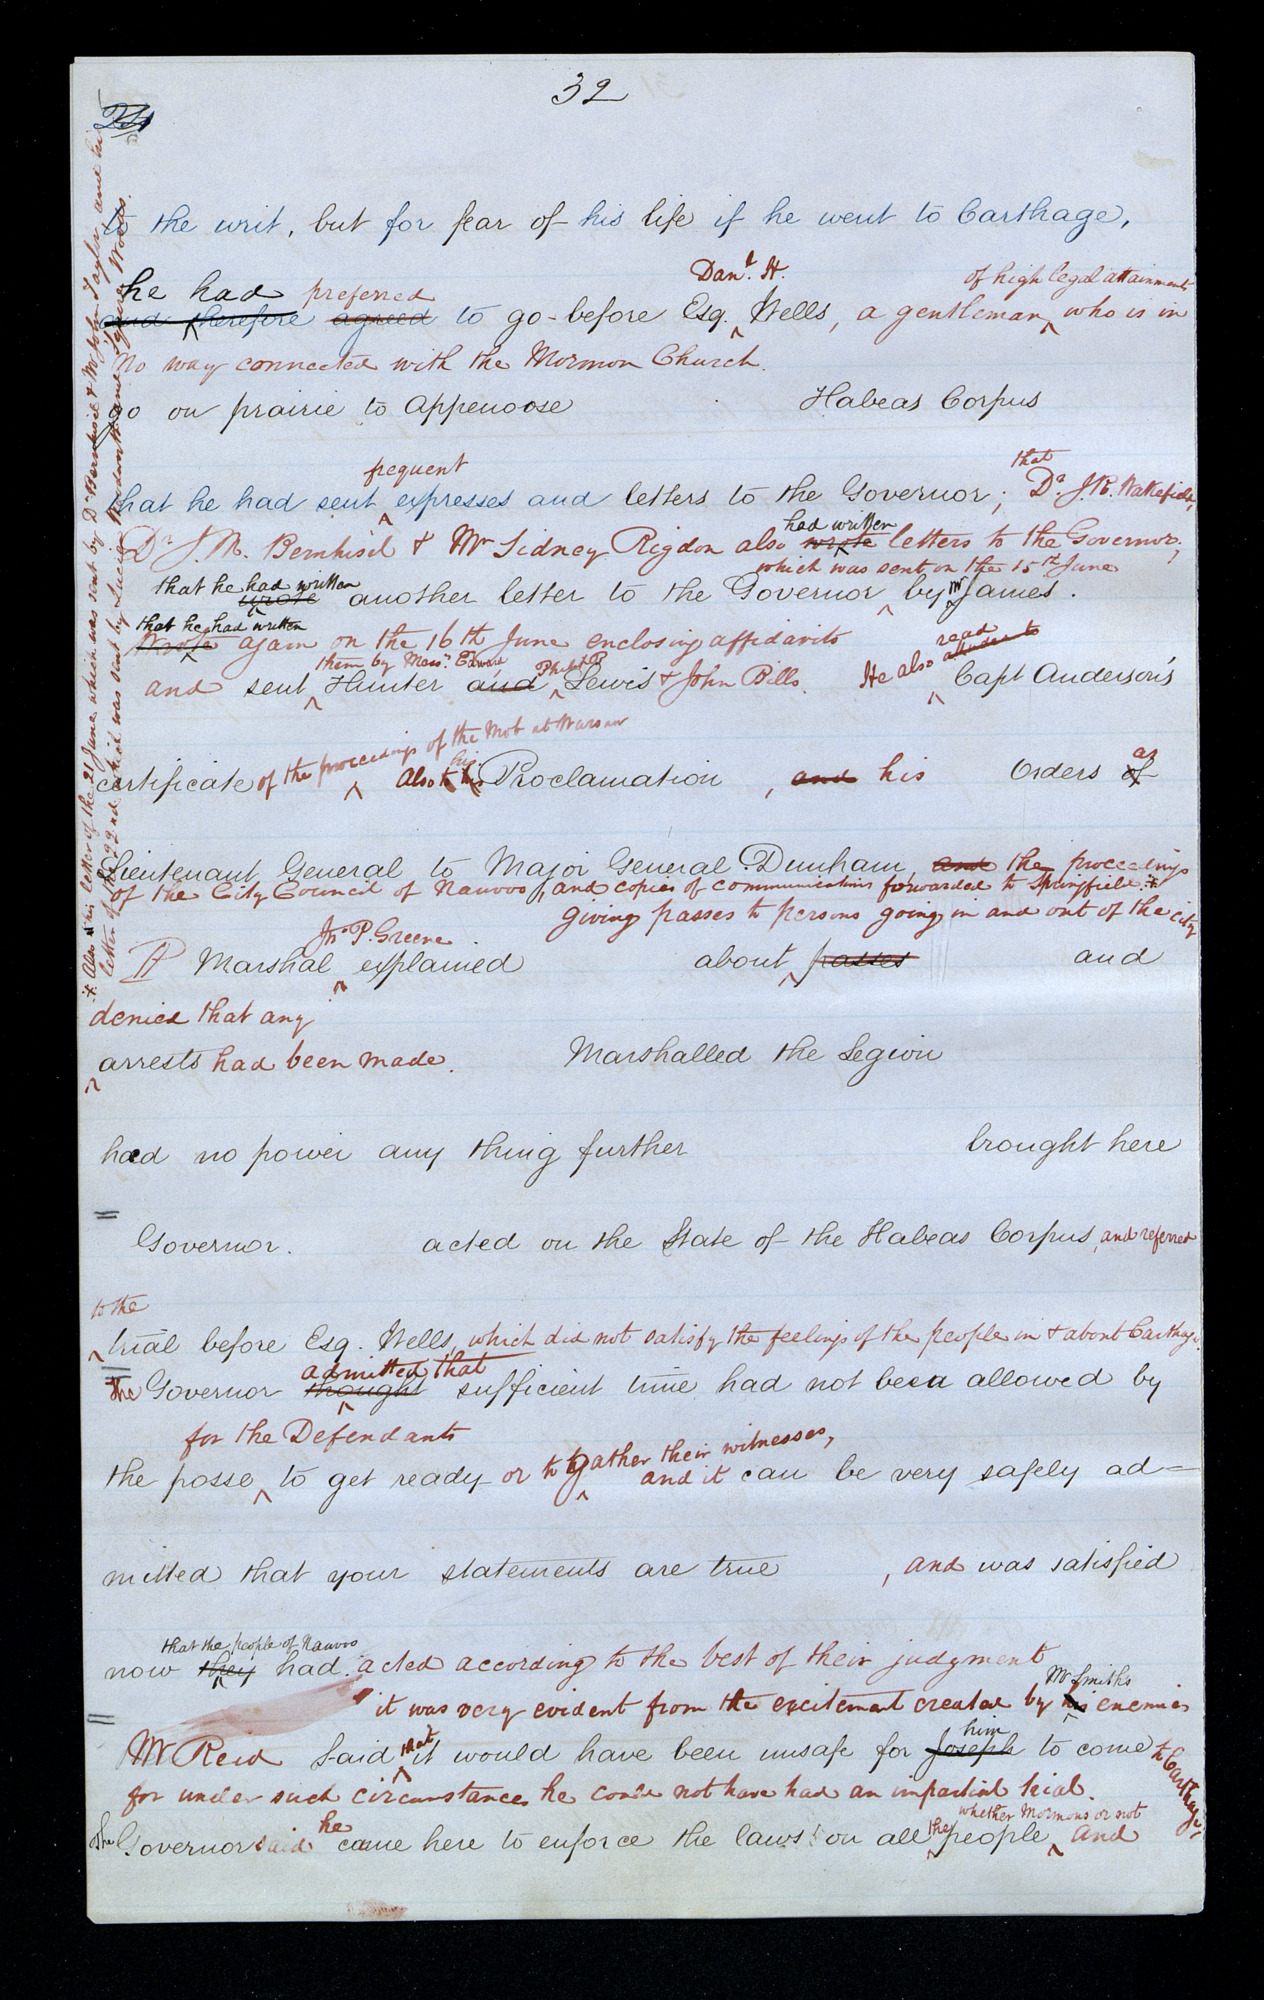 32
to the writ, but for fear of his life if he went to Carthage,
Danl. H. of high legal attainments
he had preferred
and therefore agreed to go before Esq. Wells, a gentleman, who is in
no way connected with the Mormon Church.
go on prairie to Appenoose Habeas Corpus
frequent that
that he had sent expresses and letters to the Governor; Dr. J. R. Wakefield,
had written
Dr J. M. Bernhisel & Mr Sidney Rigdon also wrote letters to the Governor;
which was sent on the 15th June
that he had written
wrote another letter to the Governor by Mr James.
that he had written
Wrote again on the 16th June enclosing affidavits
them by Messrs. Edward Philip B read
and sent Hunter and Lewis & John Bills. He also alluded to Capt Anderson's
of the proceedings of the Mob at Warsaw
certificate Also to his Proclamation, and his Orders of as
Lieutenant General to Major General Dunham, and the proceedings
of the City Council of Nauvoo, and copies of communications forwarded to Springfield. +
giving passes to persons going in and out of the city
Jno P. Greene
Marshal explained about passes and
denied that any
arrests had been made. Marshalled the Legion
had no power any thing further brought here
Governor. acted on the State of the Habeas Corpus, and referred
to the
trial before Esq. Wells, which did not satisfy the feelings of the people in & about Carthage.
admitted that
The Governor thought sufficient time had not been allowed by
for the Defendants
the posse to get ready or to gather their witnesses, and it can be very safely ad=
mitted that your statements are true, and was satisfied
that the people of Nauvoo
now they had acted according to the best of their judgment
Mr Smiths
it was very evident from the excitement created by his enemies
that him
Mr Reid Said it would have been unsafe for Joseph to come to Carthage,
for under such circumstances he could not have had an impartial trial.
he the whether Mormons or not
The Governor said came here to enforce the laws on all people, and
+ Also his letter of the 21 June which was sent by Dr Bernhisel & Mr John Taylor and his
letter of the 22nd which was sent by Lucien Woodworth and Squire Woods.